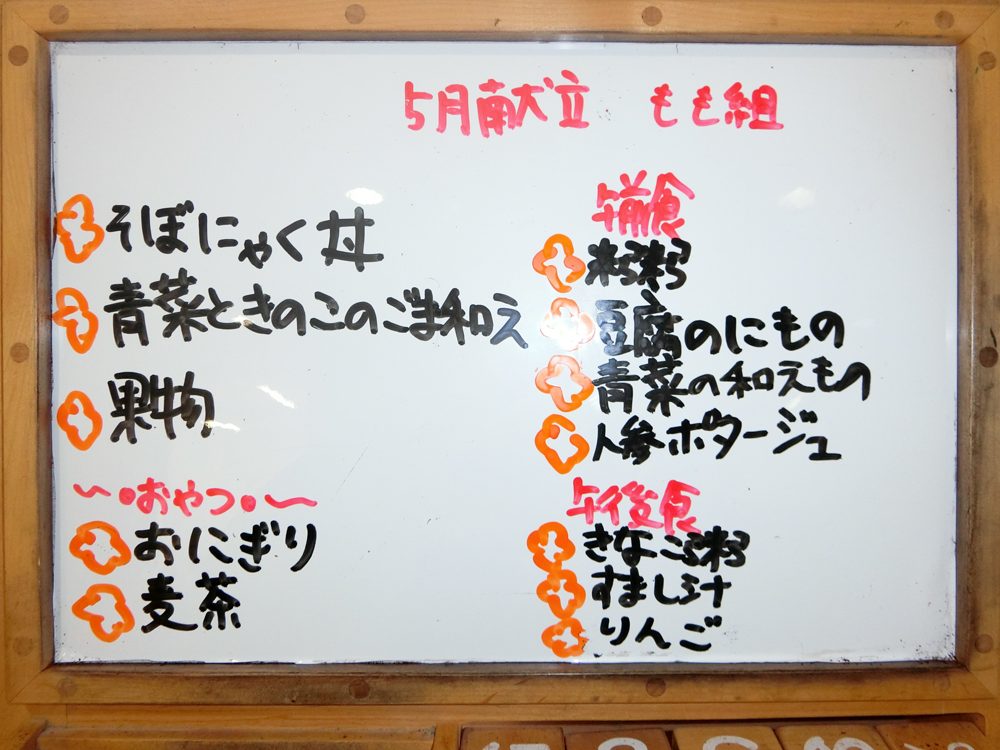 5月献立 もも組
そぼにゃく丼
青菜ときのこのごま和え
果物
〜・おやつ・〜
おにぎり
麦茶
午前食
粥
豆腐のにもの
青菜の和えもの
人参ポタージュ
午後食
きなこ粥
すまし汁
りんご